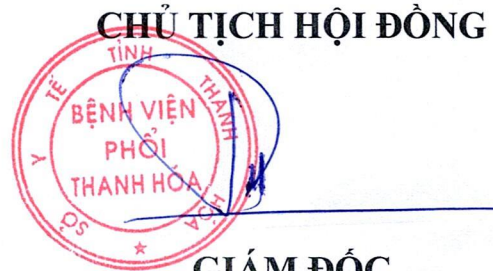 CHỦ TỊCH HỘI ĐỒNG
SỞ Y TẾ TỈNH THANH HÓA
BỆNH VIỆN
PHỔI
THANH HÓA
GIÁM ĐỐC